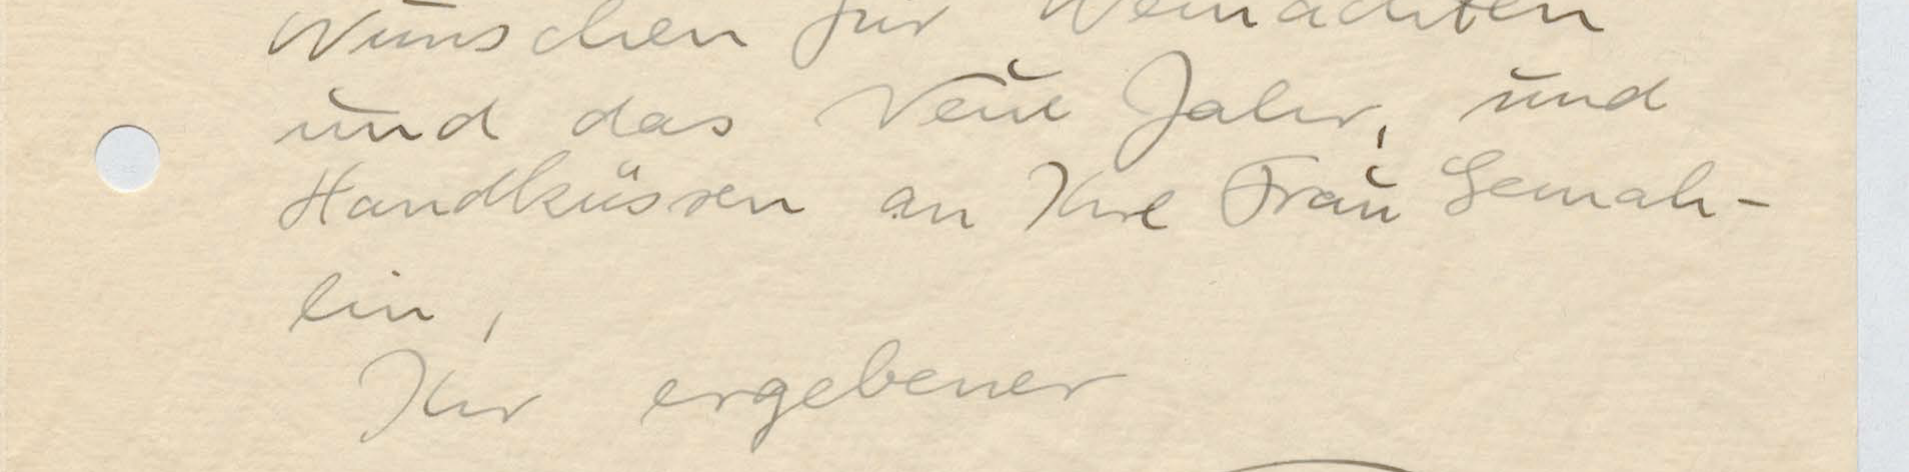 Wünschen für Weihnachten
und das Neue Jahr, und
Handküssen an Ihre Frau Gemah-
lin,
Ihr ergebener